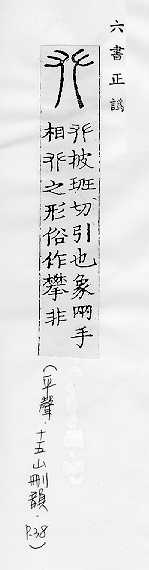 六書正譌
𠬜披班切引也象兩手
相𠬜之形俗作攀非
(平聲．十五山刪韻．P.38)